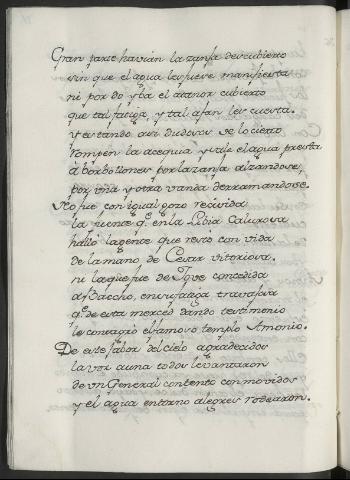 Gran parte havian la zanja descubierto
sin que el agua les fuese manifiesta
ni por do yba el atanor cubierto
que tal fatiga, y tal afan les cuesta.
y estando asi dudosos de lo cierto
rompen la acequia y sale el agua presta
à borbotones por la zanja alzandose,
por una y otra vanda derramandose.
No fue con igual gozo recivida
la fuente q.e en la Libia Calurosa
hallò la gente que resto con vida
de la mano de Cesar vitoriosa.
ni la que fue de Jove concedida
à Baccho, en su fatiga travajosa
q.e de esta merced dando testimonio
le consagrò el famoso templo Amonio.
De este fabor del cielo agradecidos
la voz à una todos levantaron
de un General contento conmovidos
y el agua entorno alegres rodearon.